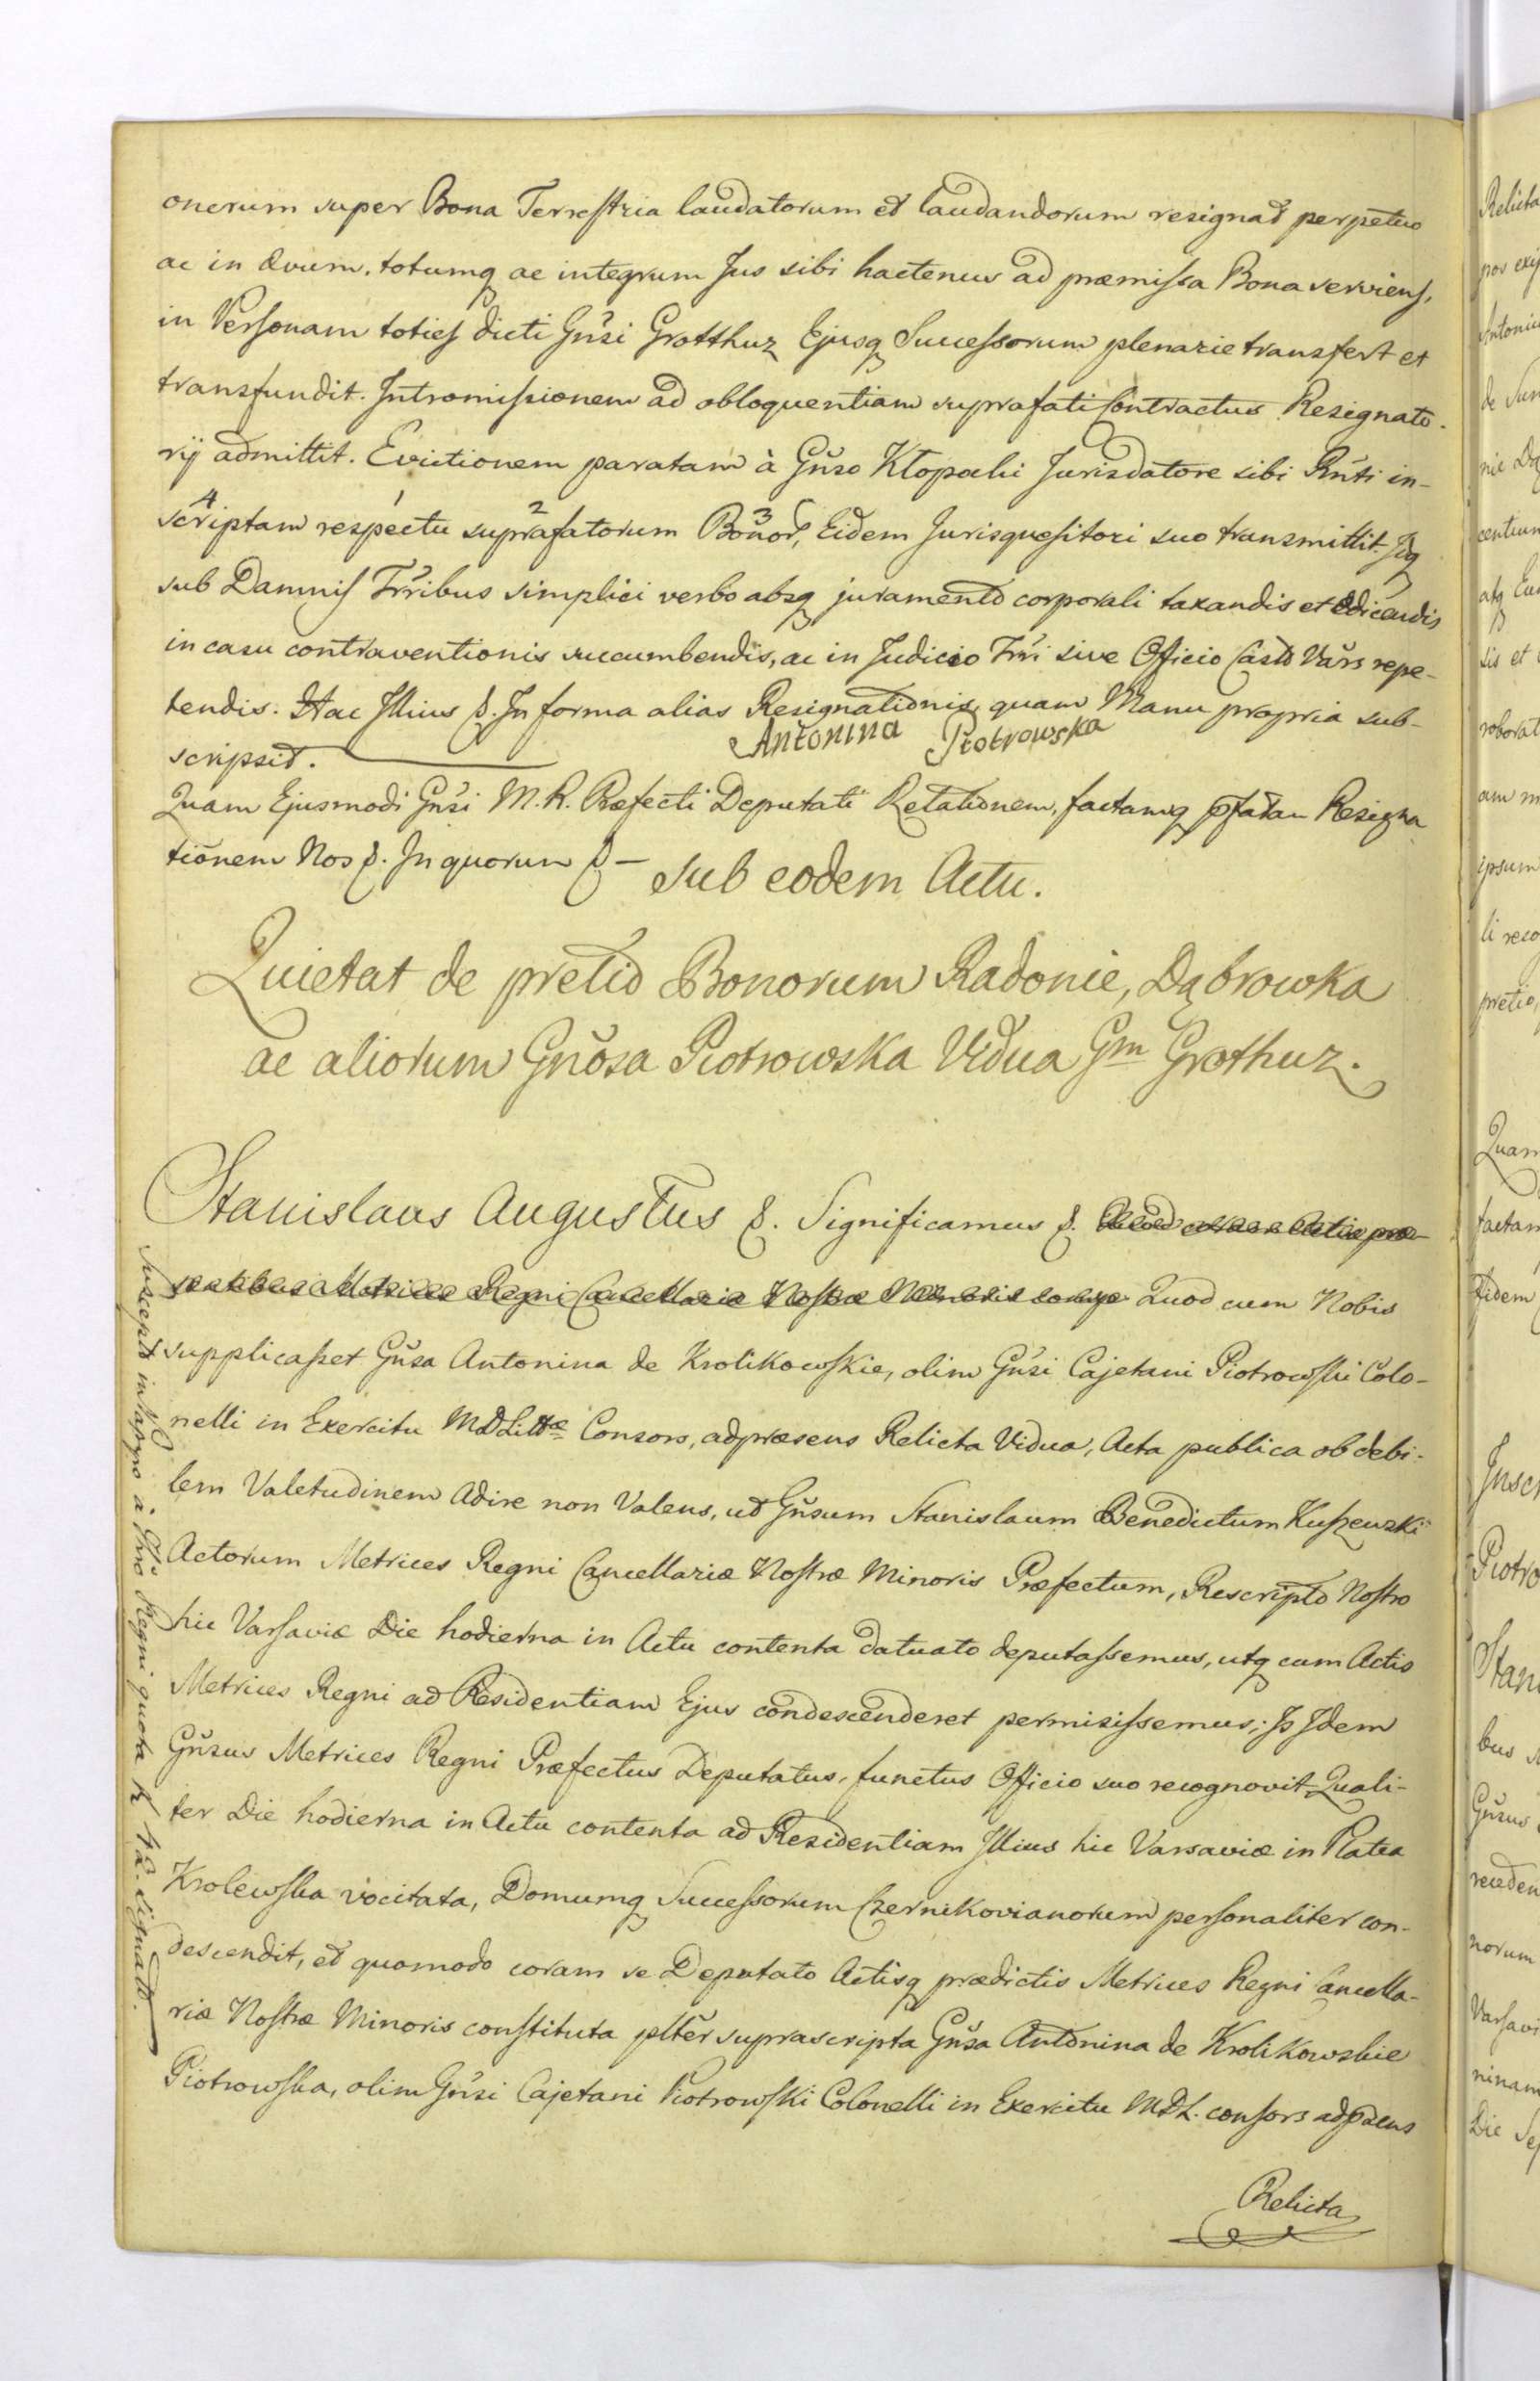 onerum super Bona Terrestria laudatorum et laudandorum resignat perpetuo
ac in ævum, totumq ac integrum Jus sibi hactenus ad præmissa Bona serviens,
in Personam toties dicti Gnsi Grotthuz Ejusq Successorum plenarie transfert et
transfundit. Intromissionem ad obloquentiam suprafati Contractus Resignato-
rij admittit. Evictionem paratam à Gnso Kłopocki Jurisdatore sibi Rnti in-
scriptam respectu suprafatorum Bonor, Eidem Jurisquesitori suo transmittit. Idq
sub Damnis Trribus simplici verbo absq juramento corporali taxandis et edicendis
in casu contraventionis succumbendis, ac in Judicio Trri sive Officio Castr Vars repe-
tendis. Hac Illius &. In forma alias Resignationis, quam Manu propria sub-
scripsit. Antonina Piotrowska
Quam Ejusmodi Gnsi M. R. Præfecti Deputati Relationem, factamq pfatam Resigna
tionem Nos &. In quorum & —
Sub eodem Actu.
Quietat de pretio Bonorum Radonie, Dąbrowka
ac aliorum Gnosa Piotrowska Vidua Gm Grothuz.
Stanislaus Augustus &. Significamus &. Quod coram Actis præ-
sentibus Metrices Regni Cancellariæ Nostræ Minoris compa Quod cum Nobis
supplicasset Gnsa Antonina de Krolikowskie, olim Gnsi Cajetani Piotrowski Colo-
nelli in Exercitu MDLittæ Consors, adpræsens Relicta Vidua, Acta publica ob debi-
lem Valetudinem Adire non Valens, ut Gnsum Stanislaum Benedictum Kuszewski
Actorum Metrices Regni Cancellariæ Nostræ Minoris Præfectum, Rescripto Nostro
hic Varsaviæ Die hodierna in Actu contenta datuato deputassemus, utq cum Actis
Metrices Regni ad Residentiam Ejus condescenderet permisissemus; Is Idem
Gnsus Metrices Regni Præfectus Deputatus, functus Officio suo recognovit Quali-
ter Die hodierna in Actu contenta ad Residentiam Illius hic Varsaviæ in Platea
Krolewska vocitata, Domumq Successorum Czernikovianorum personaliter con-
descendit, et quomodo coram se Deputato Actisq prædictis Metrices Regni Cancella-
riæ Nostræ Minoris constituta plter suprascripta Gnsa Antonina de Krolikowskie
Piotrowska, olim Gnsi Cajetani Piotrowski Colonelli in Exercitu MDL. consors adpræns
Relicta